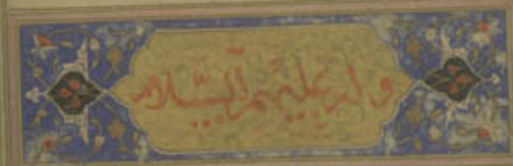 واله عليهم السّلام